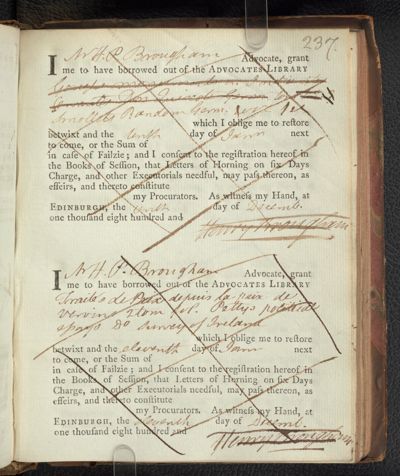 237.
I Mr H. P. Brougham Advocate, grant
me to have borrowed out of the ADVOCATES LIBRARY
Smollets Random
which I oblige me to restore
betwixt and the tenth day of Jany next
to come, or the Sum of
in case of Failzie; and I consent to the registration hereof in
the Books of Session, that Letters of Horning on six Days
Charge, and other Executorials needful, may pass thereon, as
effeirs, and thereto constitute
my Procurators. As witness my Hand, at
EDINBURGH, the day of Decemb.
one thousand eight hundred and
Henry Brougham
I Mr H. P. Brougham Advocate, grant
me to have borrowed out of the ADVOCATES LIBRARY
de Paix depuis la paix de
Vervins 2 tom fol. Pettys political
Do Survey of Ireland
which I oblige me to restore
betwixt and the eleventh day of Jany next
to come, or the Sum of
in case of Failzie; and I consent to the registration hereof in
the Books of Session, that Letters of Horning on six Days
Charge, and other Executorials needful, may pass thereon, as
effeirs, and thereto constitute
my Procurators. As witness my Hand, at
EDINBURGH, the eleventh day of Decemb.
one thousand eight hundred and
Henry Brougham